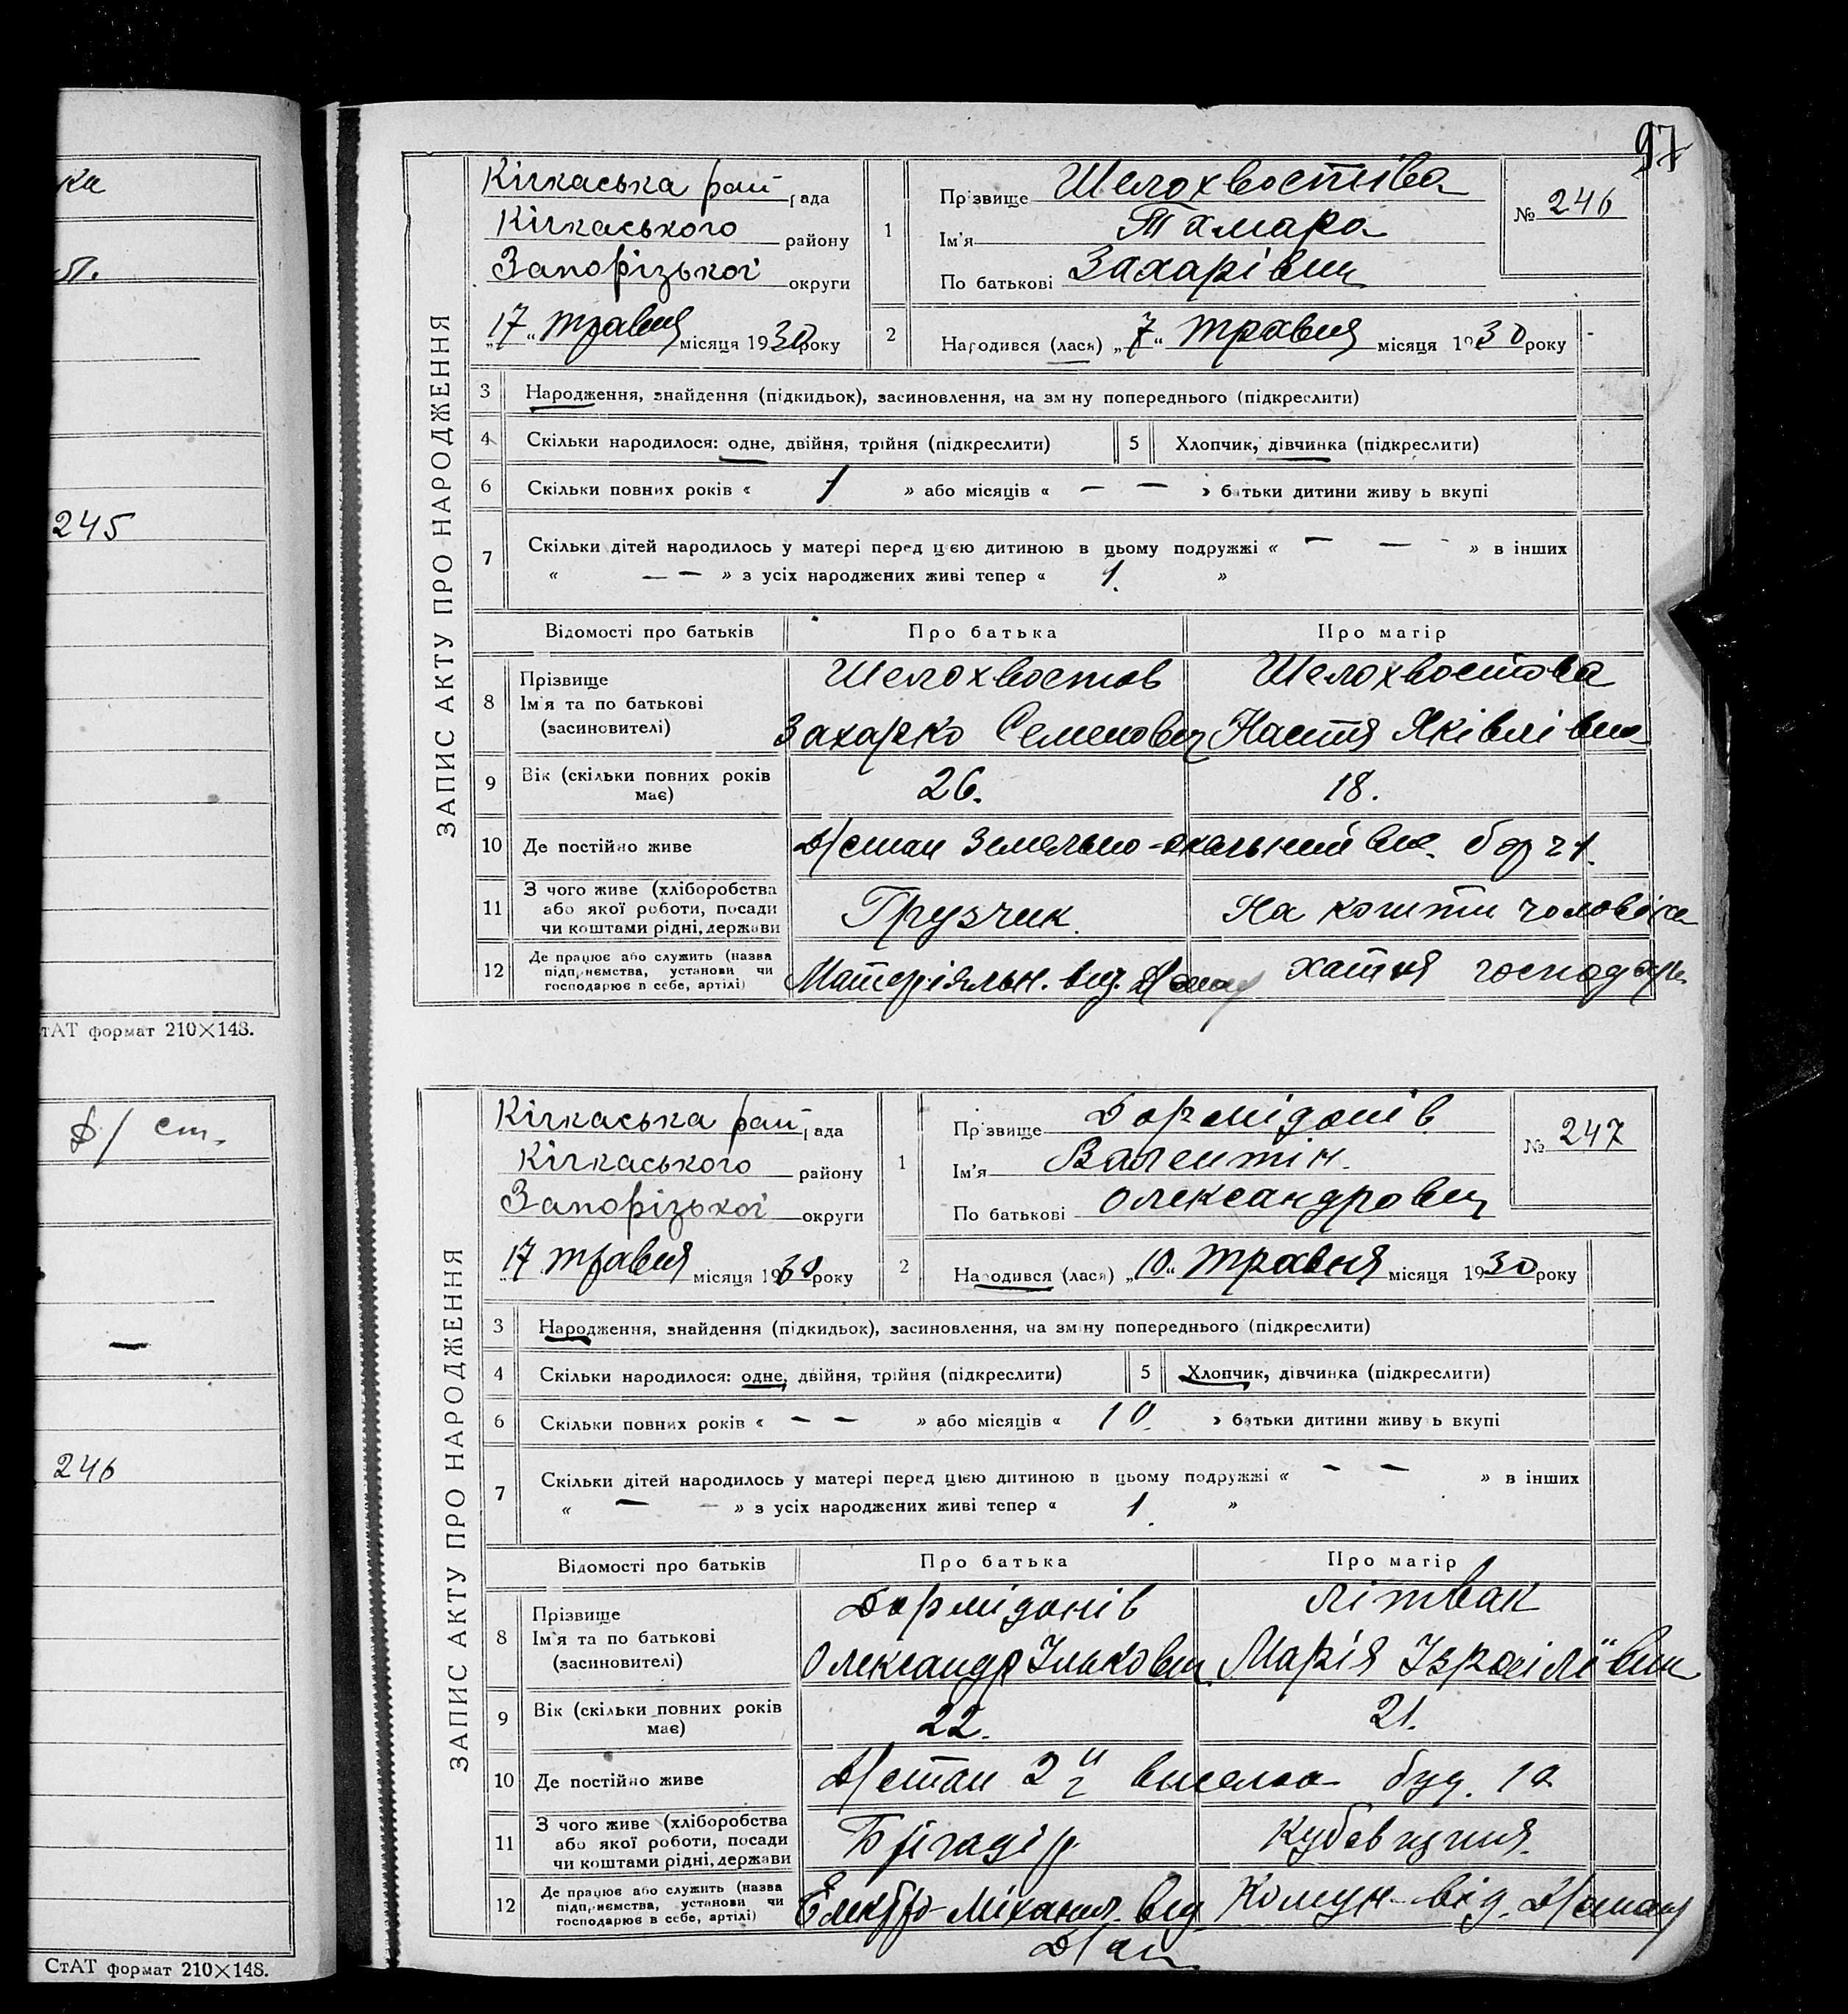 97
ка
245
СтАТ формат 210×148.
ст.
246
СтАТ формат 210×148.
ЗАПИС АКТУ ПРО НАРОДЖЕННЯ
Кічкаська рай рада
Кічкаського району
Запорізької округи
„17“ травня місяця 1930 року
1 Прізвище Шелохвостіва
Ім'я Тамара
По батькові Захарівни
№ 246
2 Народився (лася) „7“ травня місяця 1930 року
3 Народження, знайдення (підкидьок), засиновлення, на зміну попереднього (підкреслити)
4 Скільки народилося: одне, двійня, трійня (підкреслити) 5 Хлопчик, дівчинка (підкреслити)
6 Скільки повних років « 1 » або місяців « — — » батьки дитини живуть вкупі
7 Скільки дітей народилось у матері перед цією дитиною в цьому подружжі « — — » в інших
« — — » з усіх народжених живі тепер « 1. »
Відомості про батьків Про батька Про матір
8 Прізвище Ім'я та по батькові (засиновителі)
Шелохвостов Шелохвостова
Захарко Семенович Настя Яківлівна
9 Вік (скільки повних років має) 26. 18.
10 Де постійно живе Д/стан Земельно-скельний вид. бар 21.
11 З чого живе (хліборобства або якої роботи, посади чи коштами рідні, держави
Грузчик. На кошти чоловіка
12 Де працює або служить (назва підприємства, установи чи господарює в себе, артілі)
Матеріяльн. від. Д/стану хатня господар.
ЗАПИС АКТУ ПРО НАРОДЖЕННЯ
Кічкаська рай рада
Кічкаського району
Запорізької округи
„17 травня місяця 1930 року
1 Прізвище Дормідонів
Ім'я Валентін.
По батькові Олександрович
№ 247
2 Народився (лася) „10“ травня місяця 1930 року
3 Народження, знайдення (підкидьок), засиновлення, на зміну попереднього (підкреслити)
4 Скільки народилося: одне, двійня, трійня (підкреслити) 5 Хлопчик, дівчинка (підкреслити)
6 Скільки повних років « — — » або місяців « 10. » батьки дитини живуть вкупі
7 Скільки дітей народилось у матері перед цією дитиною в цьому подружжі « — — » в інших
« — — » з усіх народжених живі тепер « 1. »
Відомості про батьків Про батька Про матір
8 Прізвище Ім'я та по батькові (засиновителі)
Дормідонів Літвак
Олександр Ількович Марія Ізраілівни
9 Вік (скільки повних років має) 22. 21.
10 Де постійно живе Д/стан 2й виселок буд. 12
11 З чого живе (хліборобства або якої роботи, посади чи коштами рідні, держави
Брігадір Кубовщиця.
12 Де працює або служить (назва підприємства, установи чи господарює в себе, артілі)
Електро-Механіч. від. Комун. від. Д/стану
Д/стан